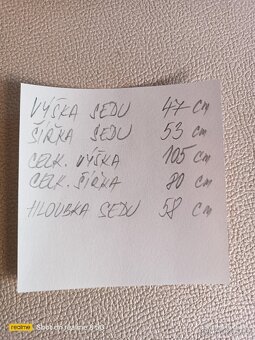 VÝŠKA SEDU 47 cm
ŠÍŘKA SEDU 53 cm
CELK. VÝŠKA 105 cm
CELK. ŠÍŘKA 80 cm
HLOUBKA SEDU 58 cm
realme Shot on realme